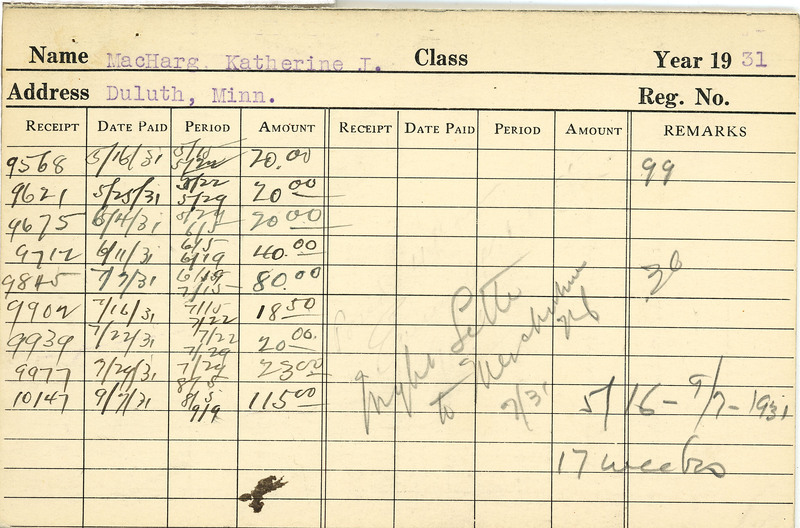 Name MacHarg, Katherine J. Class Year 1931
Address Duluth, Minn. Reg. No.
RECEIPT DATE PAID PERIOD AMOUNT RECEIPT DATE PAID PERIOD AMOUNT REMARKS
9568 5/16/31 5/15 5/22 20.00 99
9621 5/25/31 5/22 5/29 20.00
9675 6/4/31 5/29 6/5 20.00
9712 6/11/31 6/5 6/19 40.00
9845 7/7/31 6/19 7/15 80.00 36
9902 7/16/31 7/15 7/22 18.50
9939 7/22/31 7/22 7/29 20.00
9977 7/29/31 7/29 8/5 23.00
10147 9/7/31 8/5 9/9 115.00
Night Letter
to
7/31
5/16 - 9/7 - 1931
17 weeks